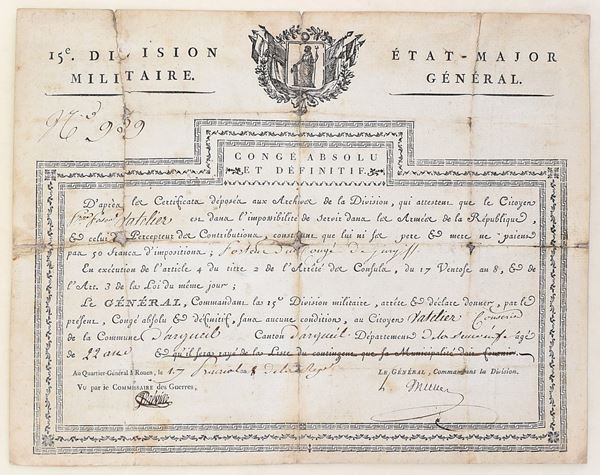 15e. DIVISION
MILITAIRE.
ÉTAT-MAJOR
GÉNÉRAL.
CONGÉ ABSOLU
ET DÉFINITIF.
D'après les Certificats déposés aux Archives de la Division, qui attestent que le Citoyen
Vatelier est dans l'impossibilité de servir dans les Armées de la République,
& celui Percepteur des Contributions, constatant que lui ni ses pere & mere ne paient
pas 50 francs d'impositions;
En exécution de l'article 4 du titre 2 de l'Arrêté des Consuls, du 17 Ventose an 8, & de
l'Art. 3 de la Loi du même jour;
Le GÉNÉRAL, Commandant la 15e Division militaire, arrête & déclare donner, par le
présent, Congé absolu & définitif, sans aucune condition, au Citoyen Vatelier
de la Commune d'argueil Canton d'argueil Département de la Seine inf. âgé
de 22 ans & qu'il sera rayé de la Liste du contingent que sa Municipalité doit fournir.
Au Quartier-Général à Rouen, le 17
LE GÉNÉRAL, Commandant la Division.
VU par le COMMISSAIRE des Guerres,